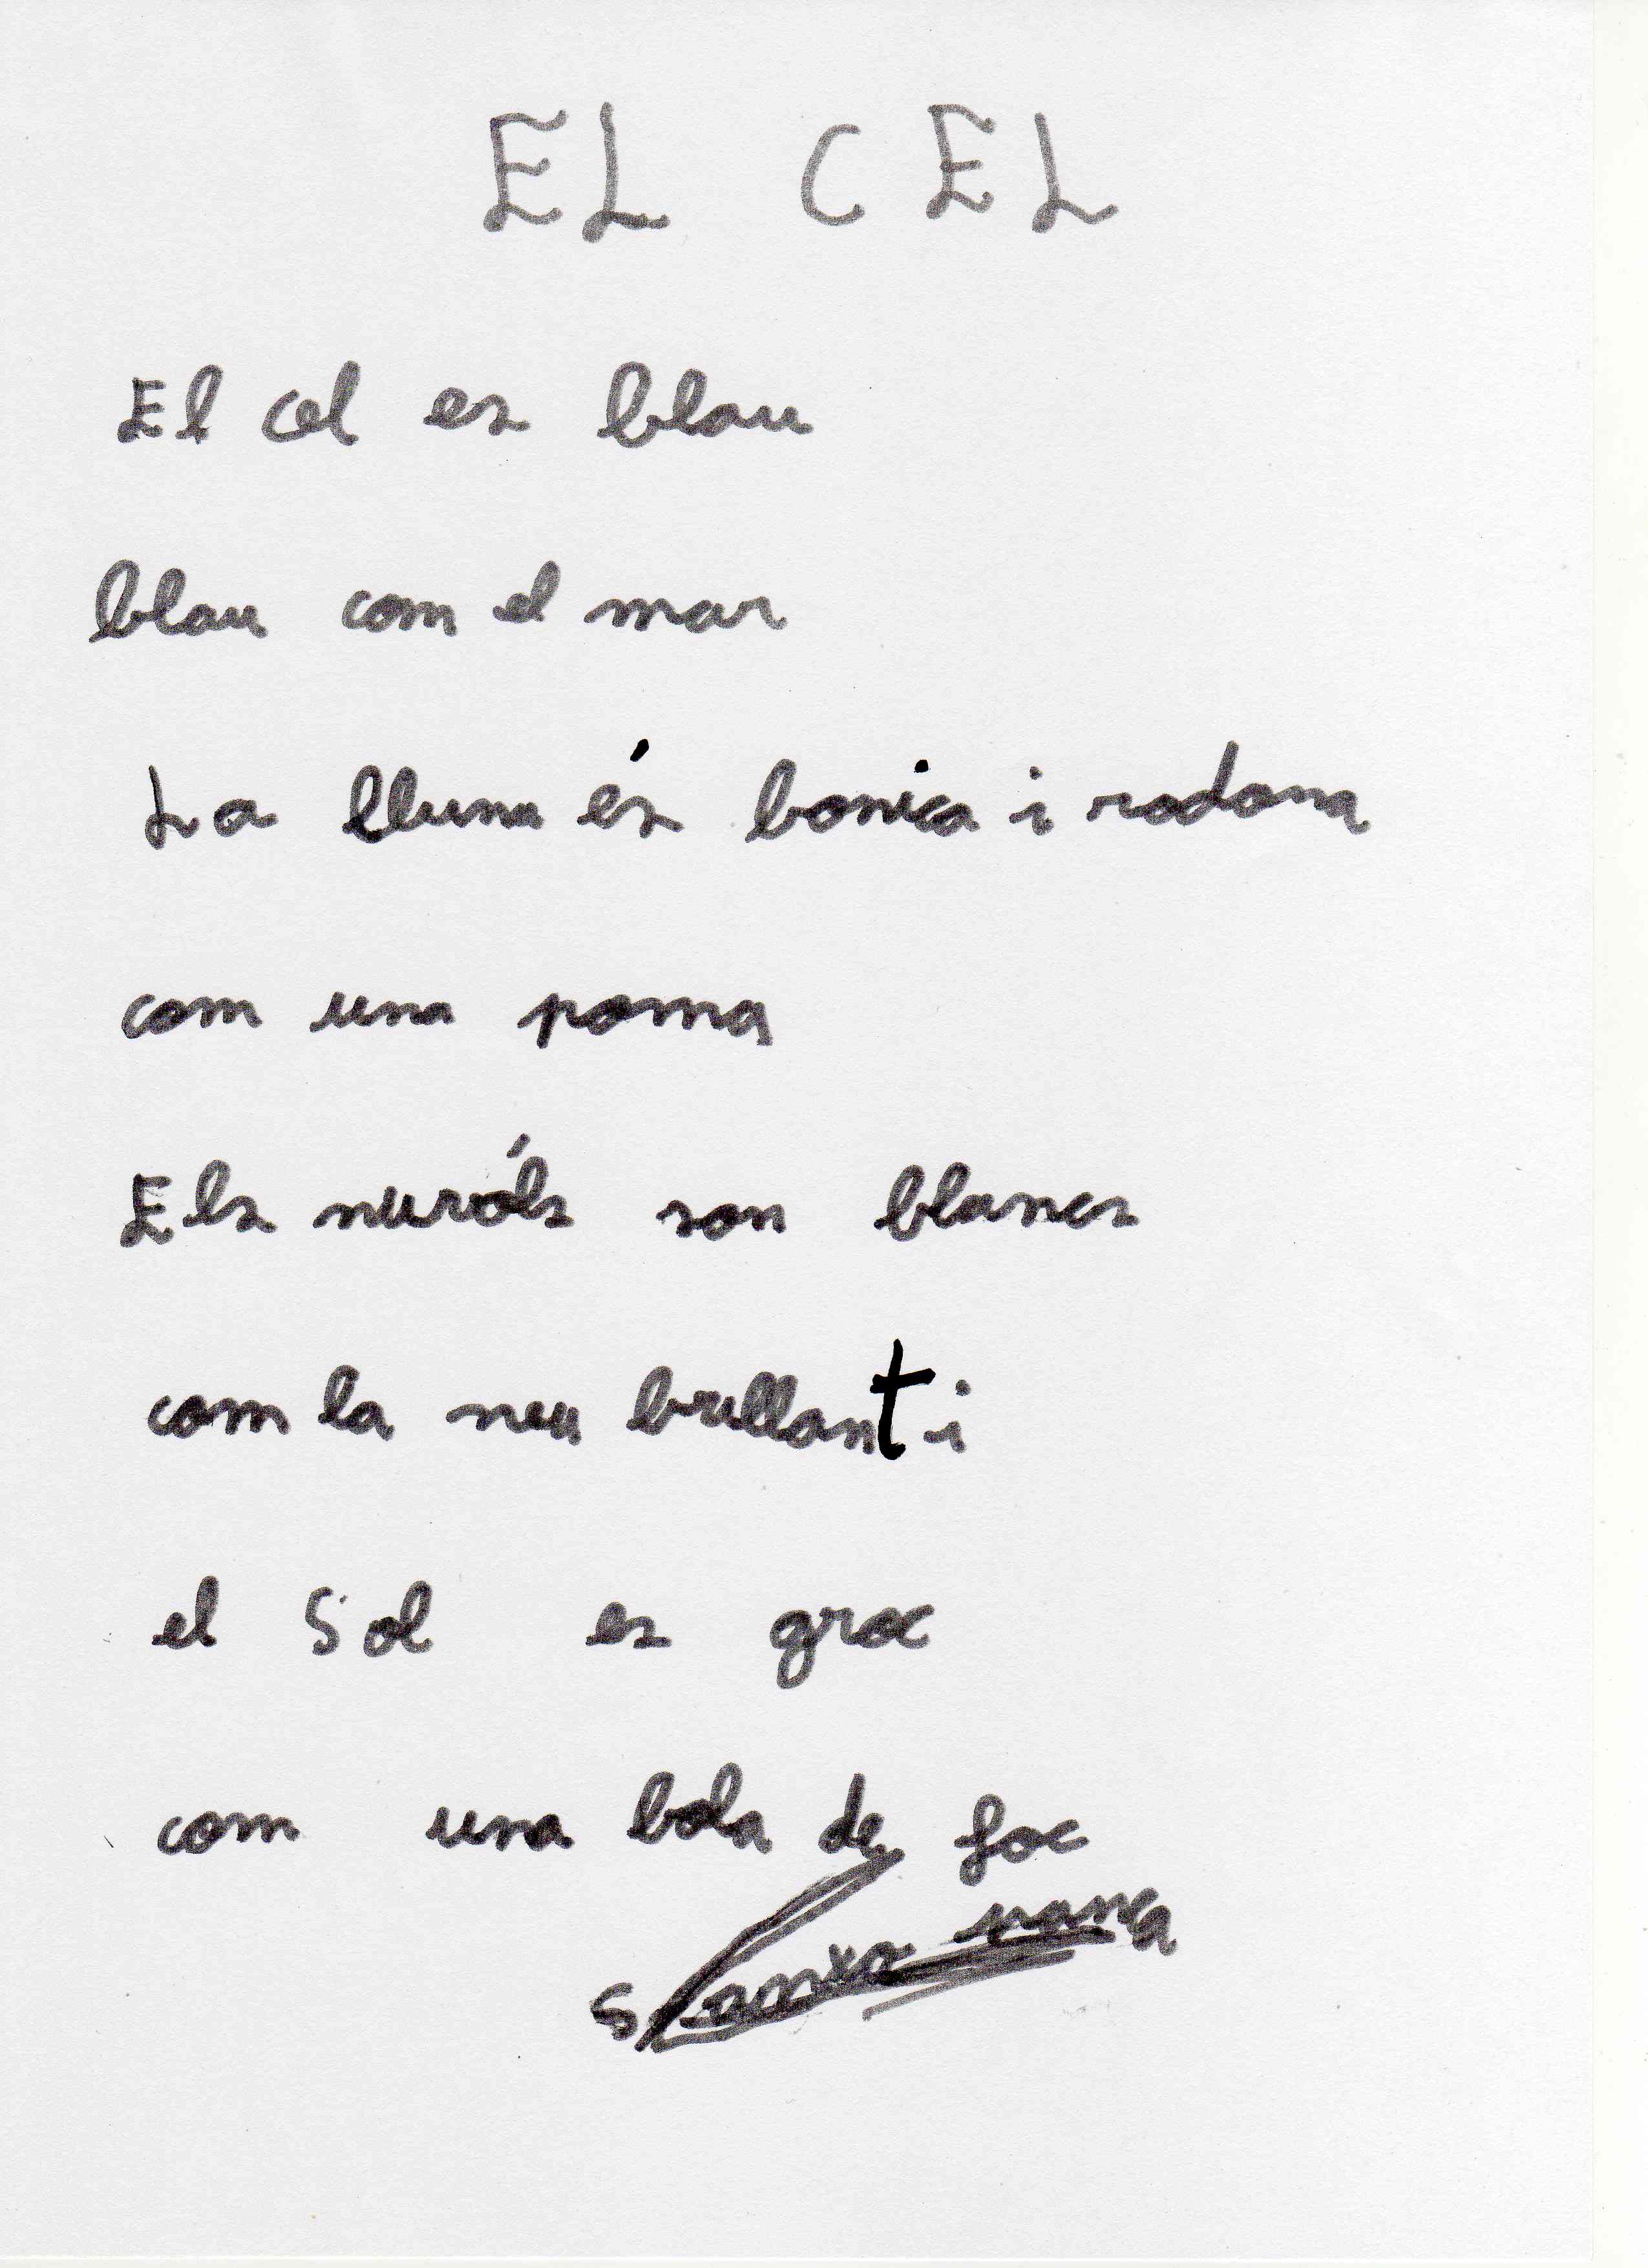 EL CEL
El cel es blau
blau com el mar
La lluna és bonica i rodona
com una poma
Els nuvóls son blancs
com la neu brillant i
el Sol es groc
com una bola de foc